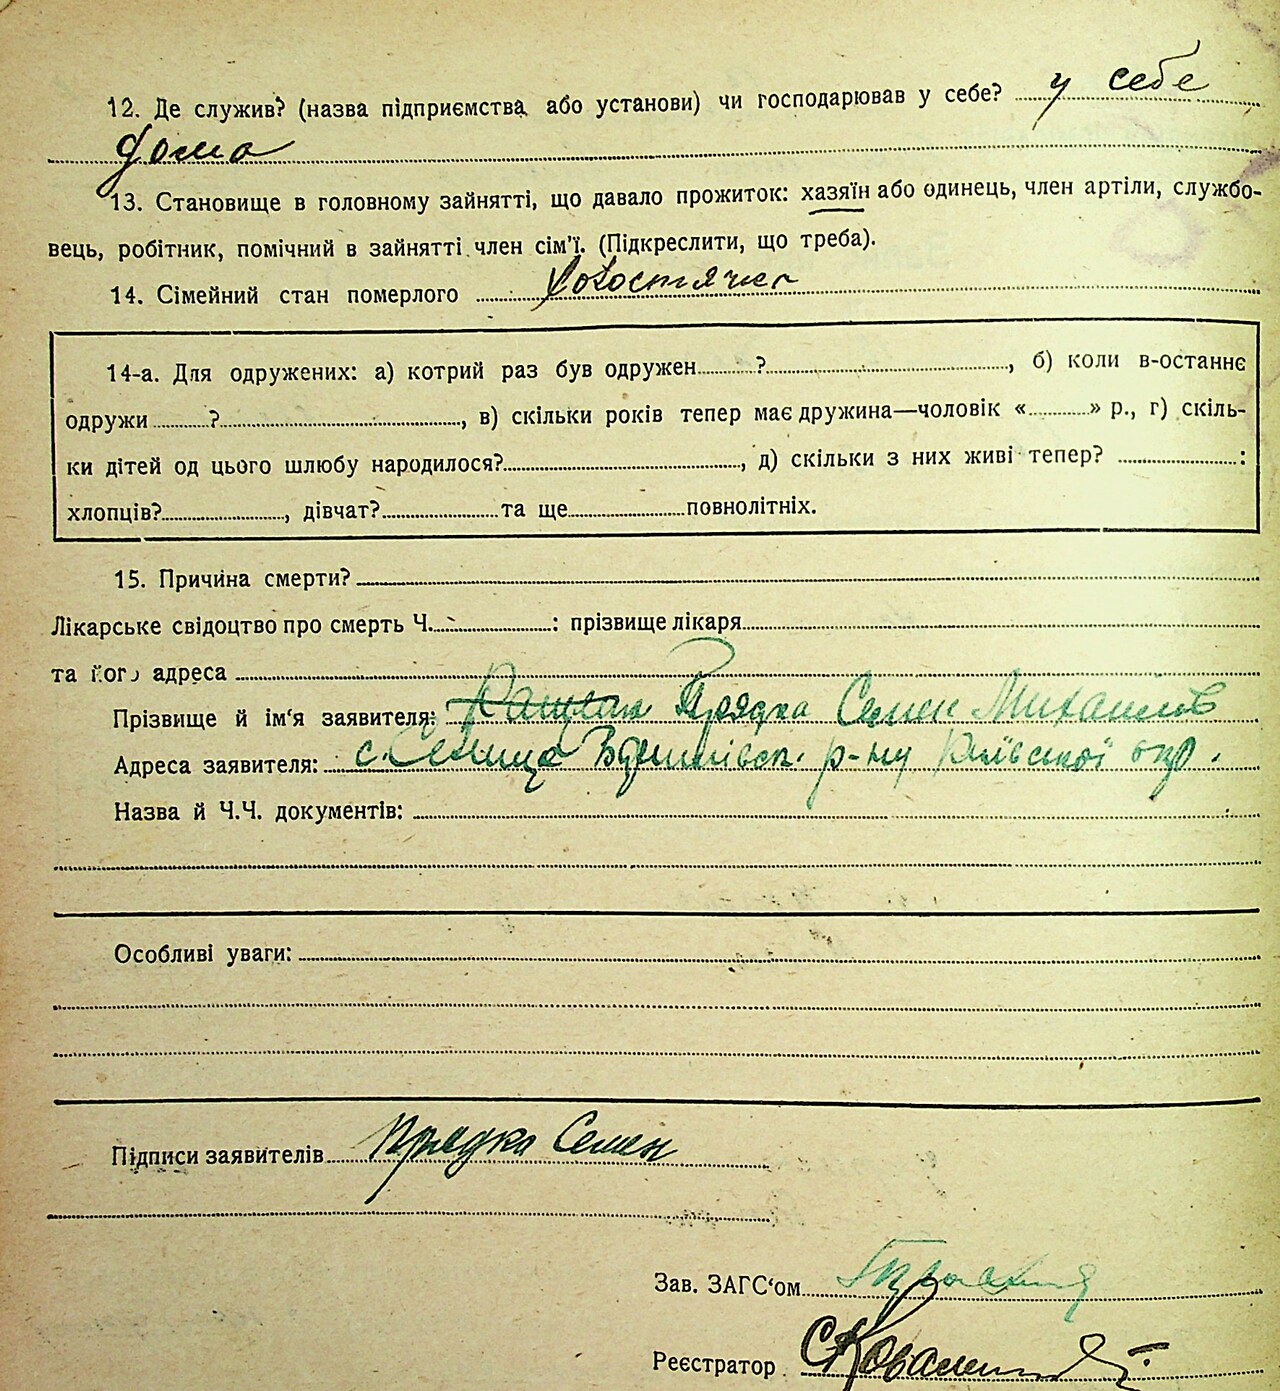 12. Де служив? (назва підприємства або установи) чи господарював у себе? у себе
дома
13. Становище в головному зайнятті, що давало прожиток: хазяїн або одинець, член артіли, службо-
вець, робітник, помічний в зайнятті член сім'ї. (Підкреслити, що треба).
14. Сімейний стан померлого
14-а. Для одружених: а) котрий раз був одружен ? , б) коли в-останнє
одружи ? , в) скільки років тепер має дружина—чоловік « » р., г) скіль-
ки дітей од цього шлюбу народилося? , д) скільки з них живі тепер? :
хлопців? , дівчат? та ще повнолітніх.
15. Причина смерти?
Лікарське свідоцтво про смерть Ч. : прізвище лікаря
та його адреса
Прізвище й ім'я заявителя: Прядка Семен Михайлов
Адреса заявителя: с. р-ну Київської окр.
Назва й Ч.Ч. документів:
Особливі уваги:
Підписи заявителів Прядка Семен
Зав. ЗАГС'ом
Реєстратор